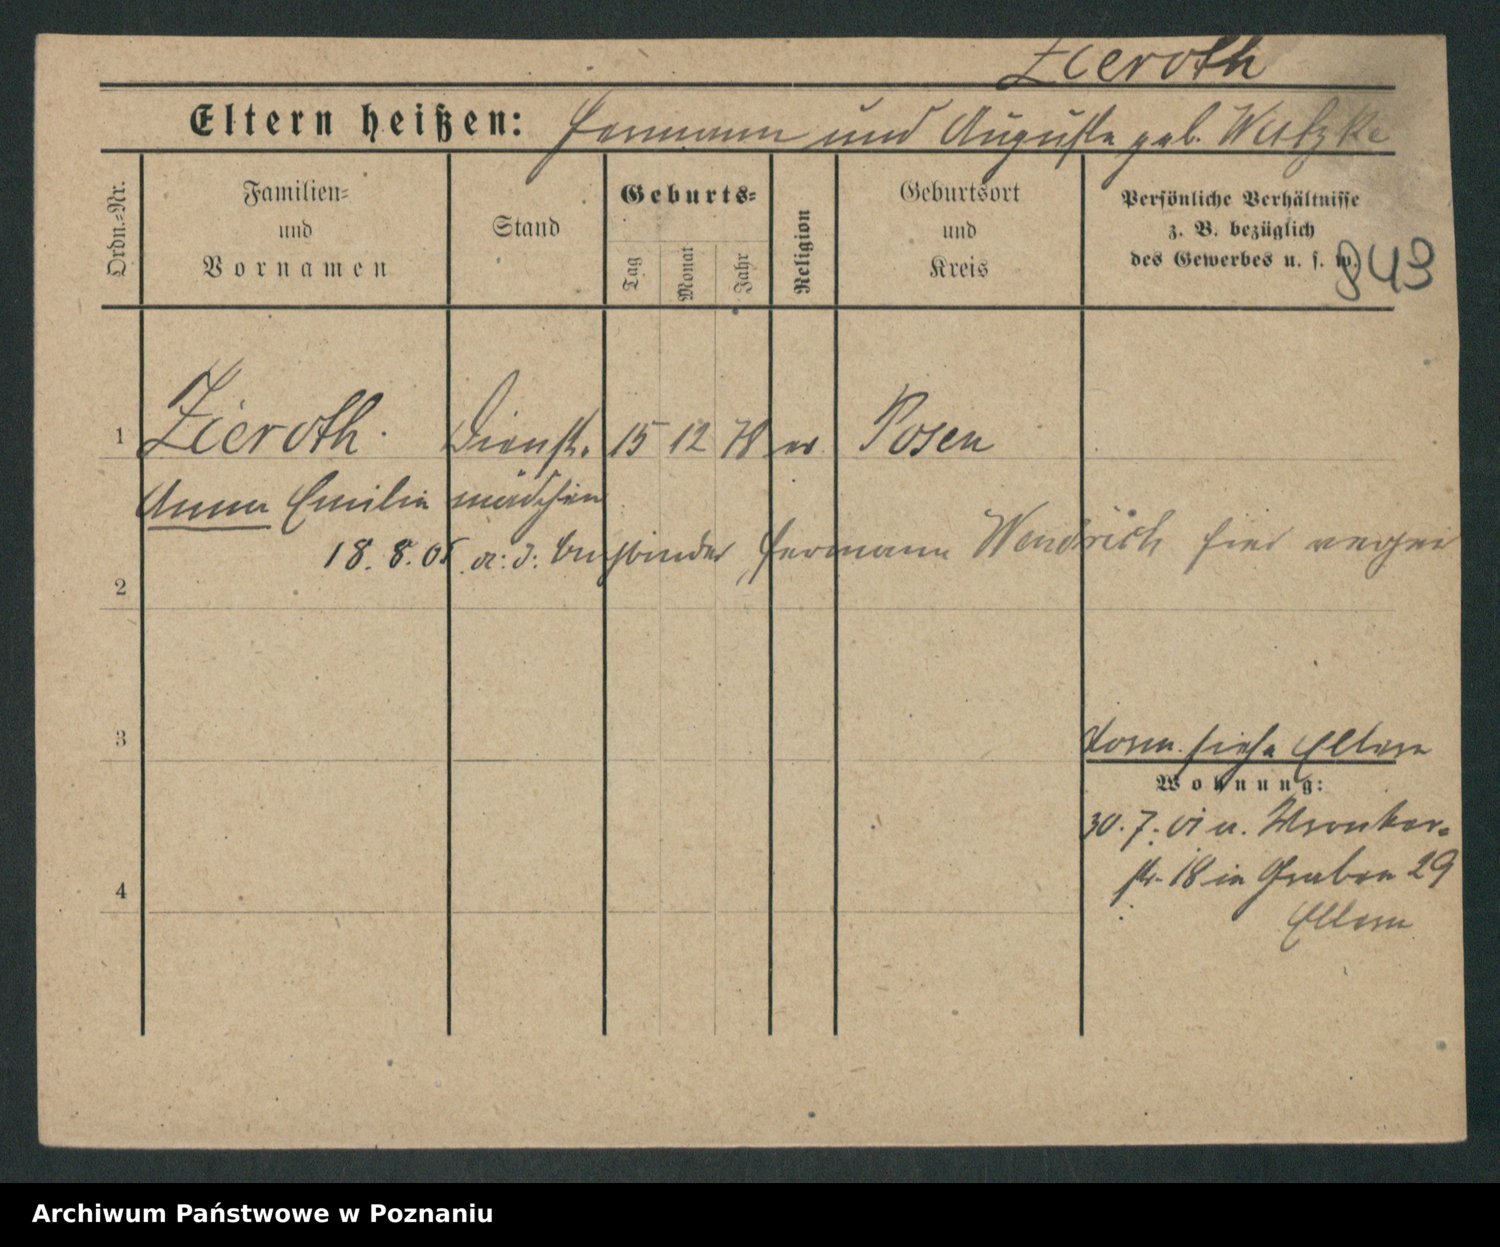 Zieroth
Eltern heißen: Hermann und Auguste geb. Wutzke
Ordn.-Nr.
Familien-
und
Vornamen
Stand
Geburts-
Tag
Monat
Jahr
Religion
Geburtsort
und
Kreis
Persönliche Verhältnisse
z. B. bezüglich
des Gewerbes u. s. w.
943
1 Zieroth. Dienst- 15 12 78 ev Posen
Anna Emilie mädchen
18. 8. 05 a. d. Hermann Wendrich hier
2
3
vorm. siehe Eltern
Wohnung:
30. 7. 01 u. Wronker-
str. 18 in Graben 29
4
Eltern
Archiwum Państwowe w Poznaniu